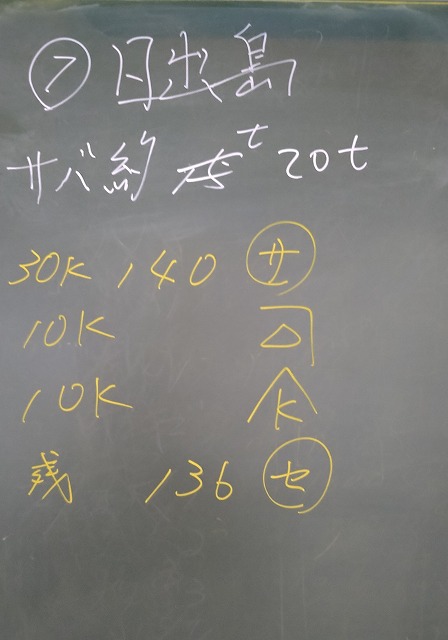 ⑦ 日出島
サバ約 t 20t
30K 140 ㊉
10K
10K K
残 136 セ